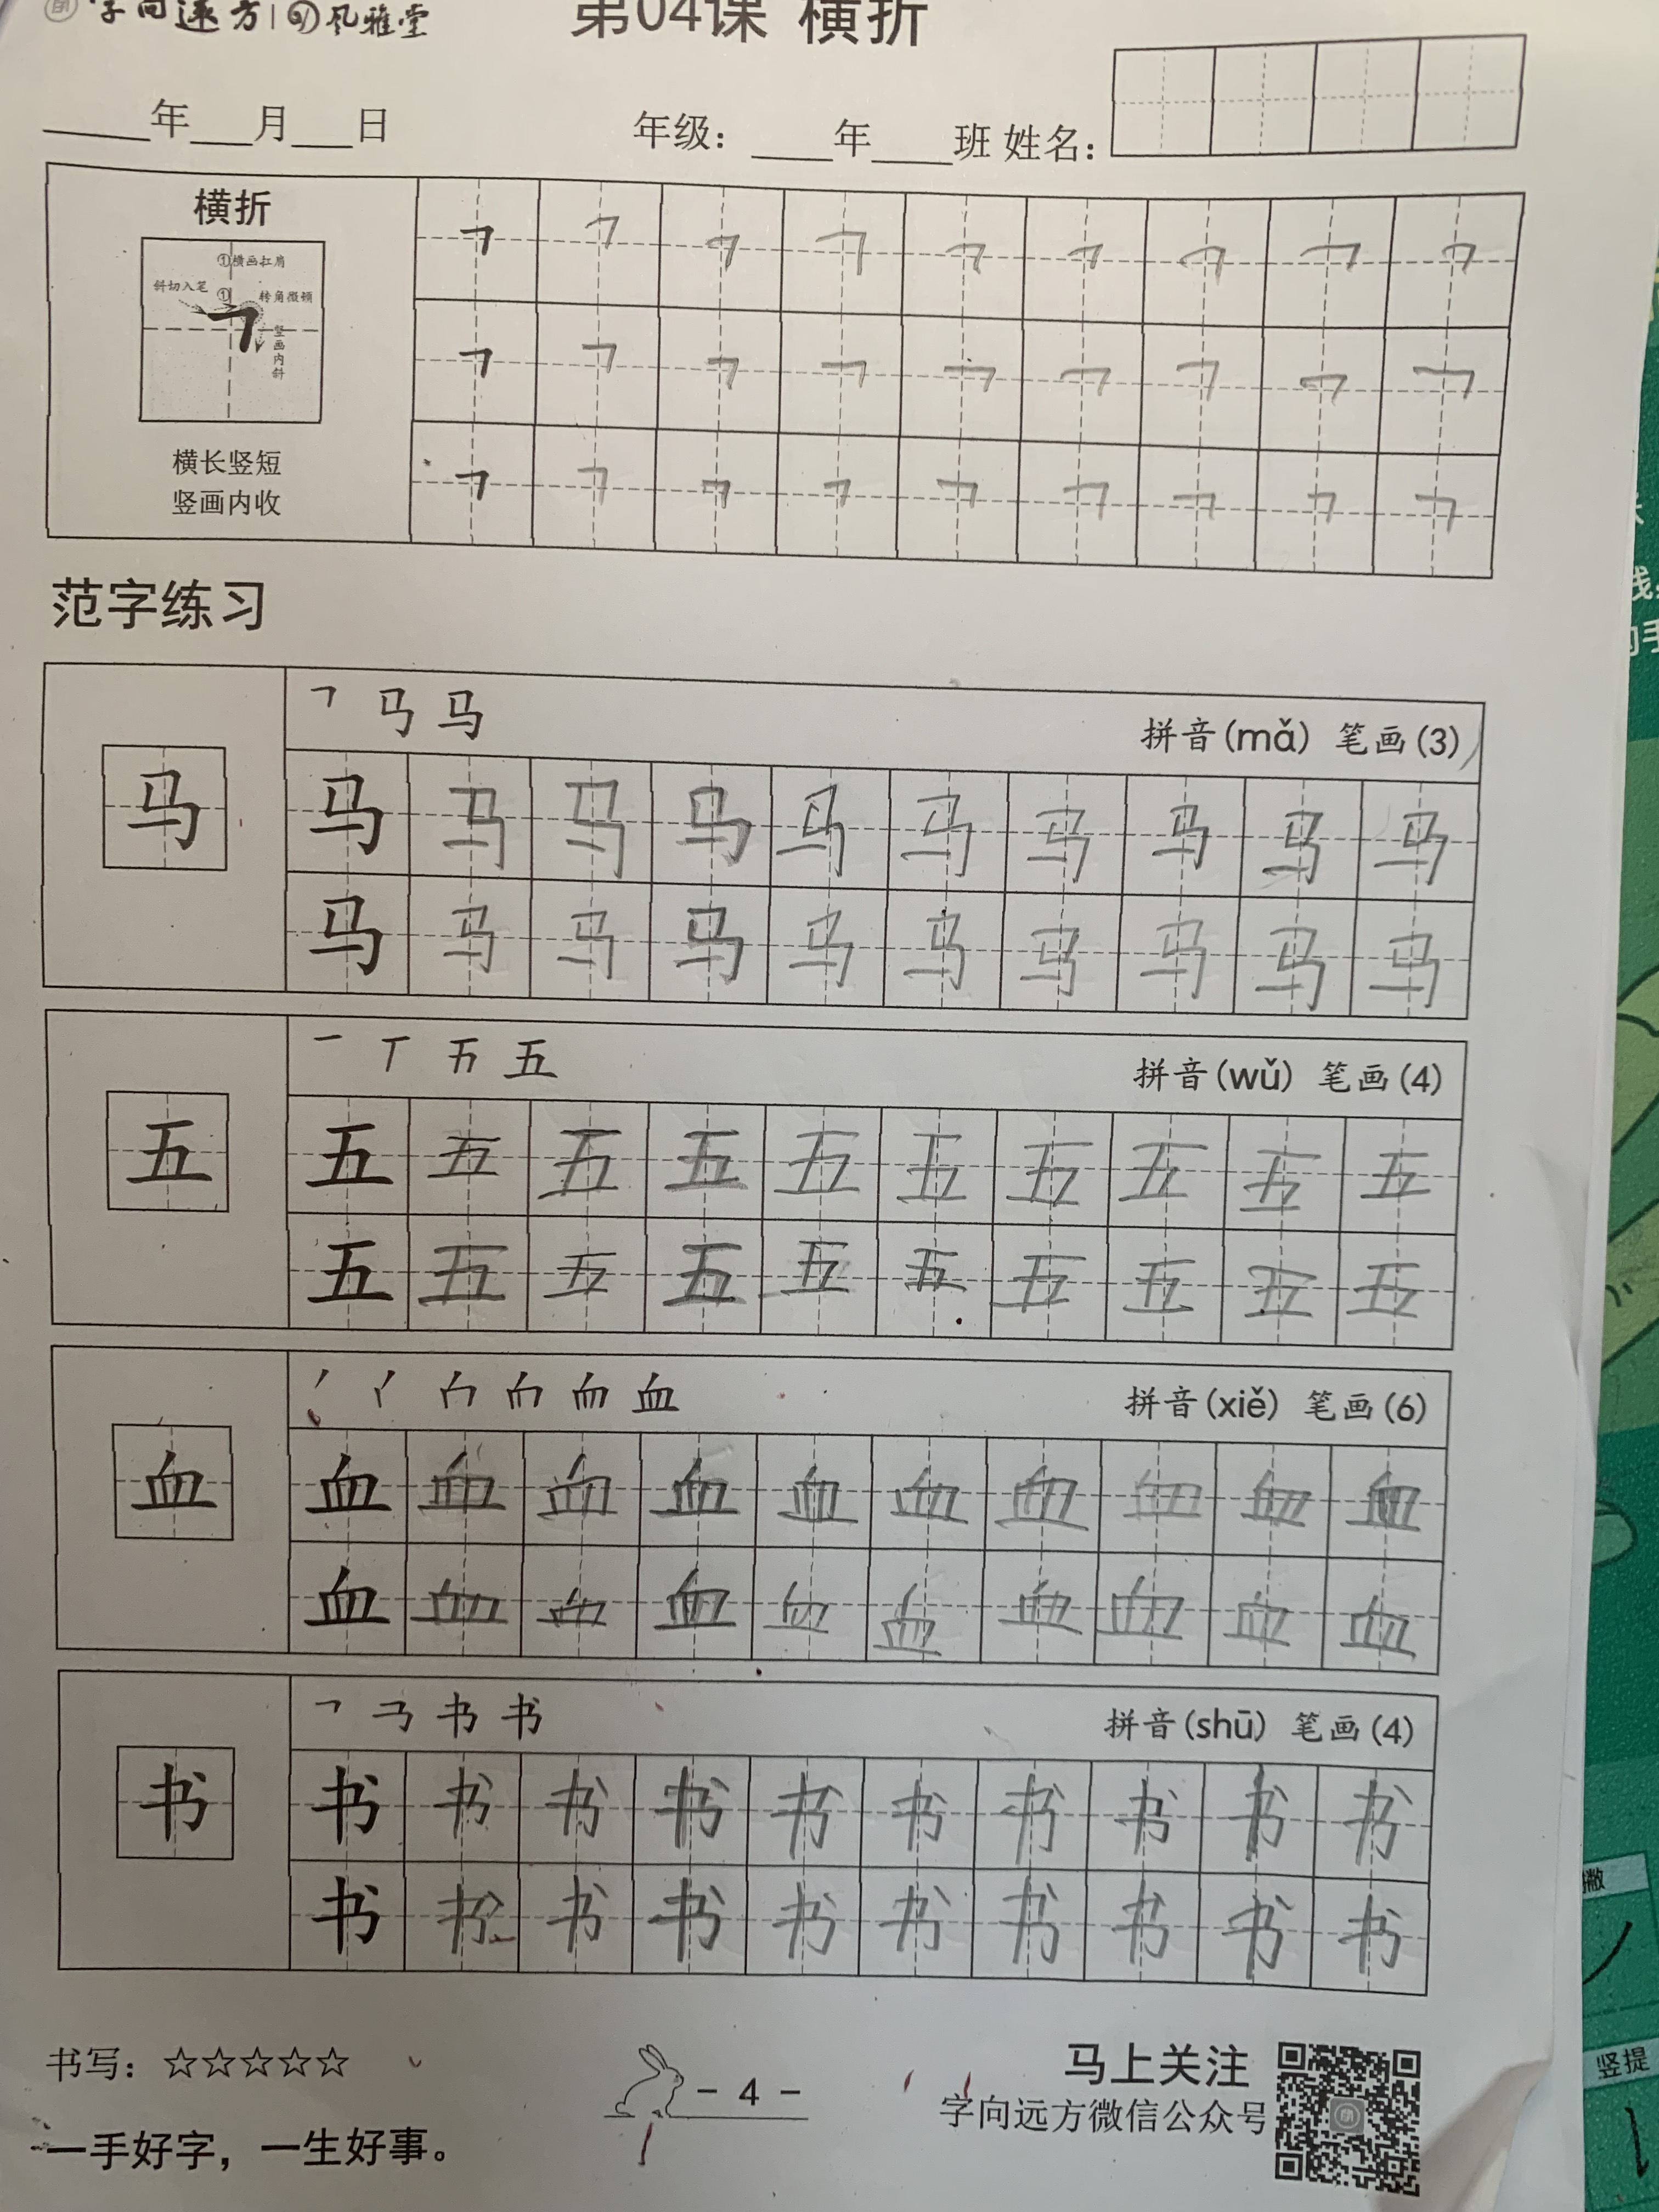 字向远方 | 风雅堂
第04课 横折
____年___月___日 年级：____年____班 姓名：
横折
①横画扛肩
斜切入笔 ① 转角微顿
竖画内斜
横长竖短
竖画内收
㇕ ㇕ ㇕ ㇕ ㇕ ㇕ ㇕ ㇕ ㇕
㇕ ㇕ ㇕ ㇕ ㇕ ㇕ ㇕ ㇕ ㇕
㇕ ㇕ ㇕ ㇕ ㇕ ㇕ ㇕ ㇕ ㇕
范字练习
马 拼音(mǎ) 笔画(3)
马
马 马 马 马 马 马 马 马 马 马
马 马 马 马 马 马 马 马 马 马
五 拼音(wǔ) 笔画(4)
五
五 五 五 五 五 五 五 五 五 五
五 五 五 五 五 五 五 五 五 五
血 拼音(xiě) 笔画(6)
血
血 血 血 血 血 血 血 血 血 血
血 血 血 血 血 血 血 血 血 血
书 拼音(shū) 笔画(4)
书
书 书 书 书 书 书 书 书 书 书
书 书 书 书 书 书 书 书 书 书
书写：☆☆☆☆☆
- 4 -
马上关注
字向远方微信公众号
一手好字，一生好事。
竖提